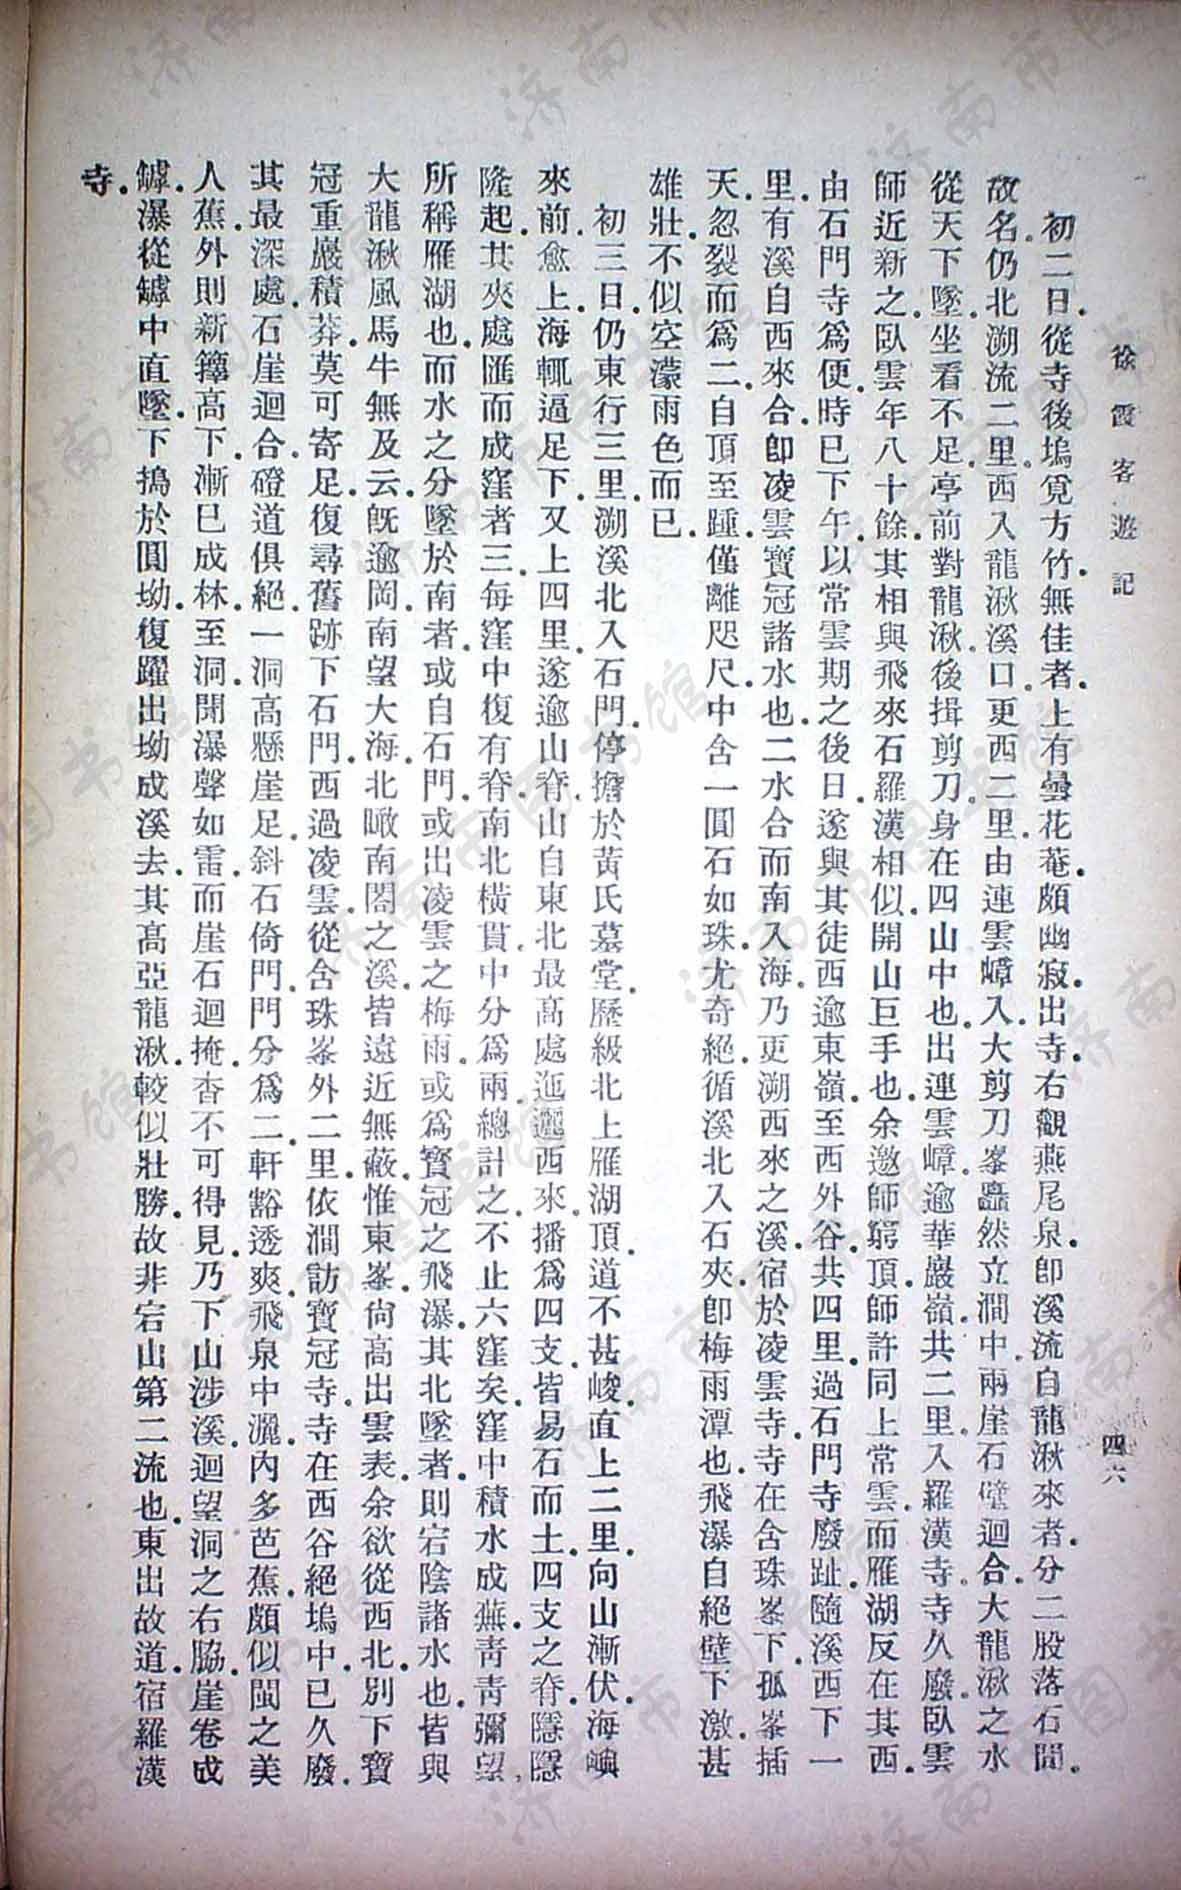 徐霞客遊記
四六
初二日.從寺後塢覓方竹.無佳者.上有曇花菴.頗幽寂.出寺.右觀燕尾泉.卽溪流自龍湫來者.分二股落石間.
故名.仍北溯流二里.西入龍湫溪口.更西二里.由連雲嶂入.大剪刀峯矗然立澗中.兩崖石壁迴合.大龍湫之水
從天下墜.坐看不足.亭前對龍湫.後揖剪刀.身在四山中也.出連雲嶂.逾華巖嶺.共二里.入羅漢寺.寺久廢.臥雲
師近新之.臥雲年八十餘.其相與飛來石羅漢相似.開山巨手也.余邀師窮頂.師許同上常雲.而雁湖反在其西.
由石門寺爲便.時已下午.以常雲期之後日.遂與其徒西逾東嶺.至西外谷.共四里.過石門寺廢趾.隨溪西下一
里.有溪自西來合.卽凌雲寶冠諸水也.二水合而南入海.乃更溯西來之溪.宿於凌雲寺.寺在含珠峯下.孤峯插
天.忽裂而爲二.自頂至踵.僅離咫尺.中含一圓石如珠.尤奇絕.循溪北入石夾.卽梅雨潭也.飛瀑自絕壁下激.甚
雄壯.不似空濛雨色而已.
初三日.仍東行三里.溯溪北入石門.停擔於黃氏墓堂.歷級北上雁湖頂.道不甚峻.直上二里.向山漸伏.海嶼
來前.愈上.海輒逼足下.又上四里.遂逾山脊.山自東北最高處迤邐西來.播爲四支.皆易石而土.四支之脊.隱隱
隆起.其夾處匯而成窪者三.每窪中復有脊.南北橫貫.中分爲兩.總計之.不止六窪矣.窪中積水成蕪.靑靑彌望.
所稱雁湖也.而水之分墜於南者.或自石門.或出凌雲之梅雨.或爲寶冠之飛瀑.其北墜者.則宕陰諸水也.皆與
大龍湫風馬牛無及云.旣逾岡.南望大海.北瞰南閤之溪.皆遠近無蔽.惟東峯尙高出雲表.余欲從西北別下寶
冠.重巖積莽.莫可寄足.復尋舊跡下石門.西過凌雲.從含珠峯外二里.依澗訪寶冠寺.寺在西谷絕塢中.已久廢.
其最深處.石崖迴合.磴道俱絕.一洞高懸崖足.斜石倚門.門分爲二.軒豁透爽.飛泉中灑.內多芭蕉.頗似閩之美
人蕉.外則新籜高下.漸已成林.至洞.聞瀑聲如雷.而崖石迴掩.杳不可得見.乃下山涉溪.迴望洞之右脇.崖卷成
罅.瀑從罅中直墜.下搗於圓坳.復躍出坳成溪去.其高亞龍湫.較似壯勝.故非宕山第二流也.東出故道.宿羅漢
寺.